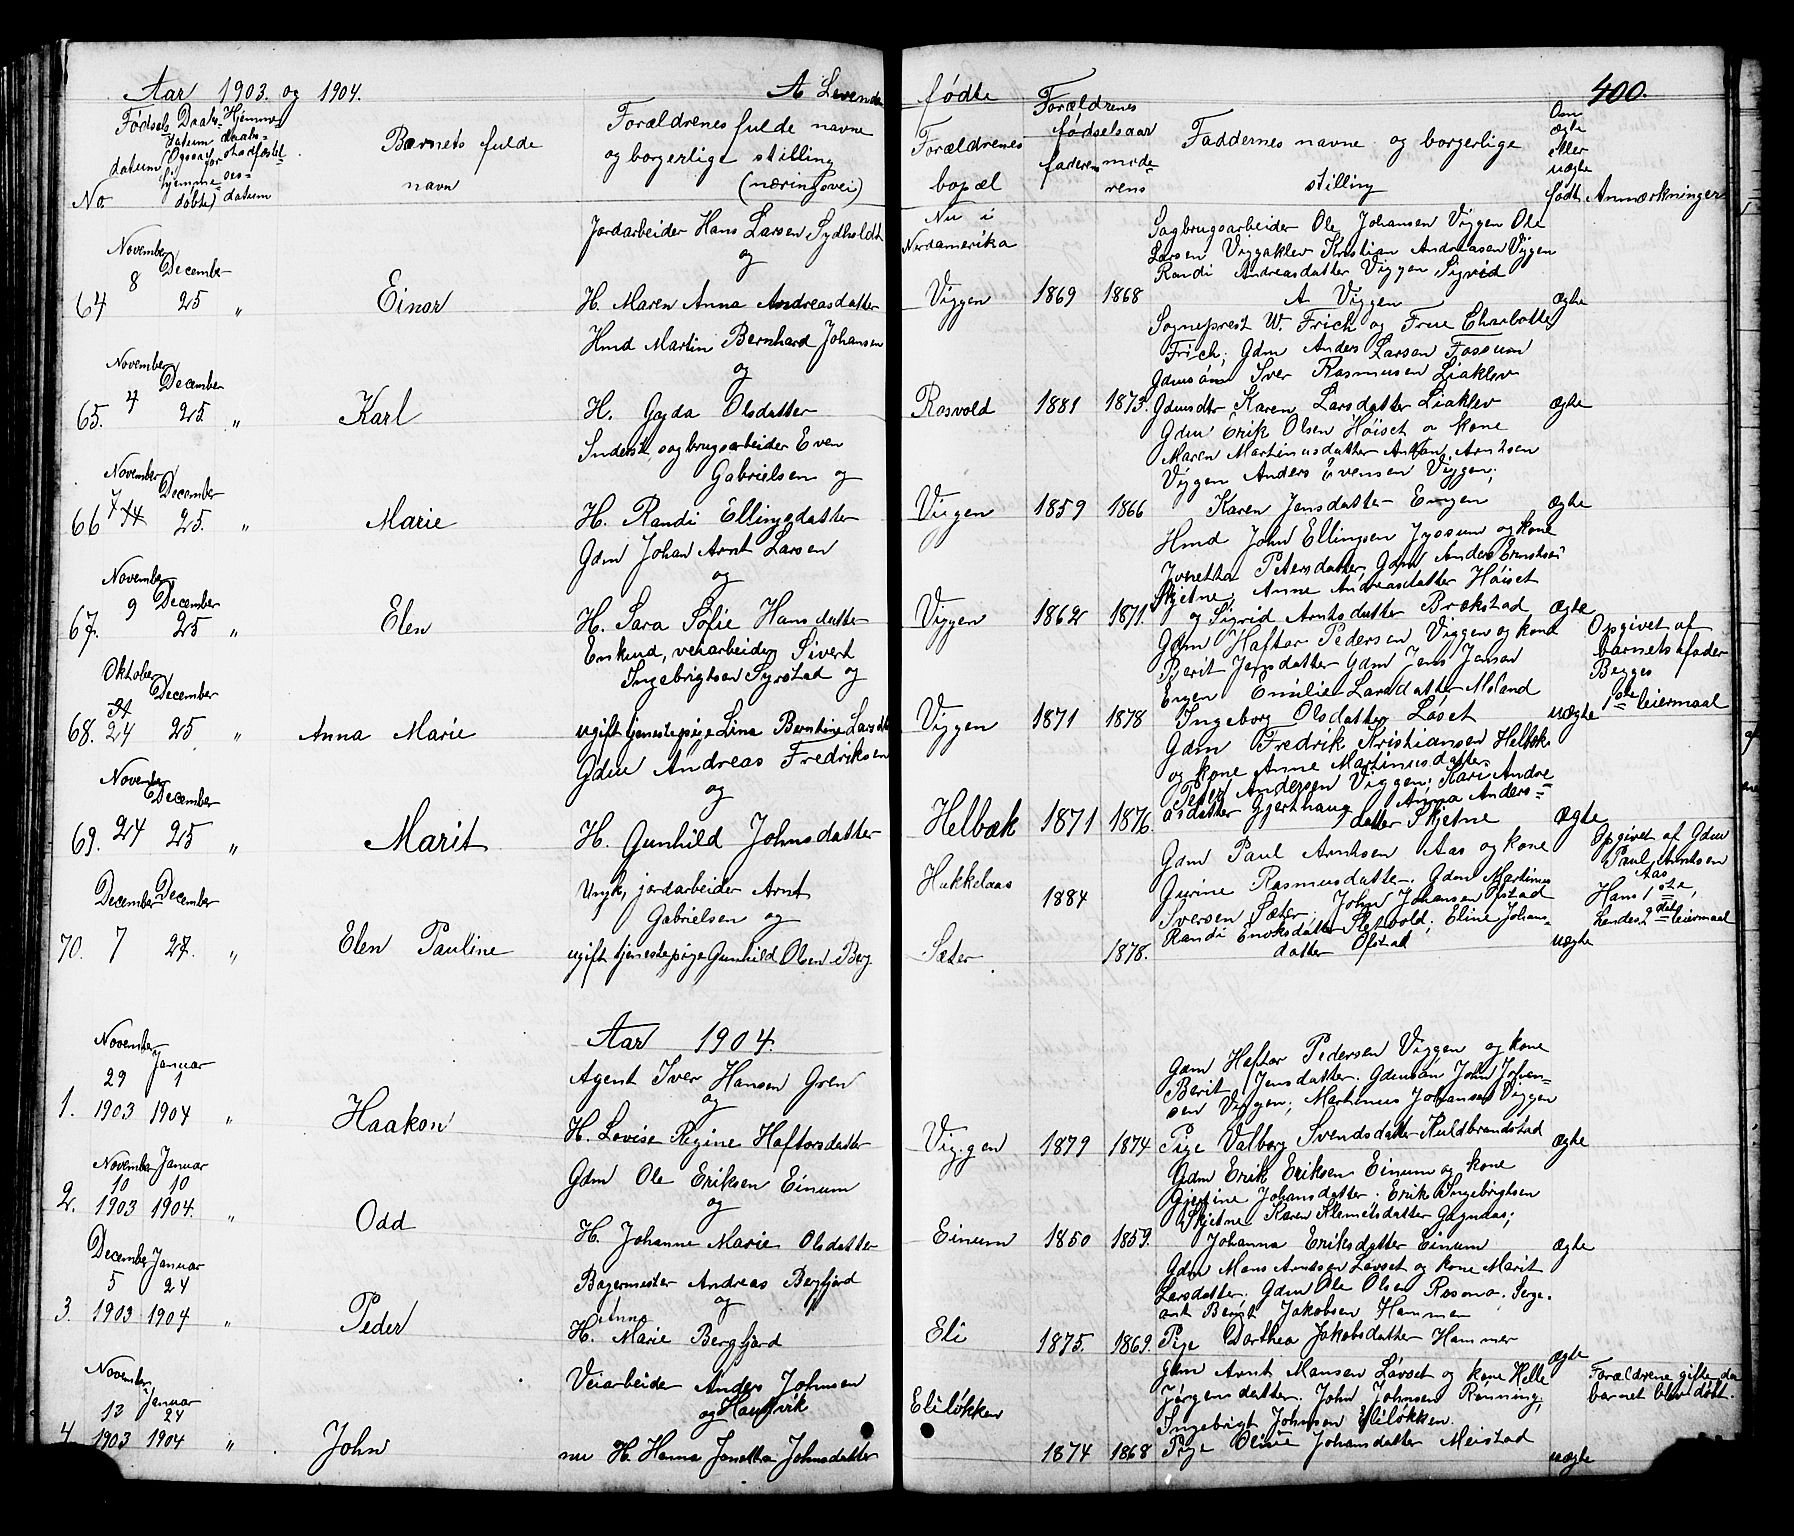 Aar 1903. og 1904. A Levende fødte 400.
No
Fødsels datum
Daabs- datum (Ogsaa for hjemme døbte)
Hjemme daabs- stadfæstel- ses- datum
Barnets fulde navn
Forældrenes fulde navne og borgerlige stilling (næringsvei)
Forældrenes bopæl
Forældrenes fødselsaar faderens moderens
Faddernes navne og borgerlige stilling
Om ægte eller uægte født
Anmærkninger
64 November 8 December 25 "
Einar
Jordarbeider Hans Larsen Sydholdt
og
H. Maren Anna Andreasdatter
Nu i Nordamerika
Viggen 1869 1868
Sagbrugsarbeider Ole Johansen Viggen Ole
Larsen Viggakler Kristian Andreasen Viggen
Randi Andreasdatter Viggen Sigrid
A Viggen
ægte
65. November 4 December 25 "
Karl
Hmd Martin Bernhard Johansen
og
H. Gyda Olsdatter
Rosvold 1881 1873.
Sogneprest W. Frich og Frue Charlotte
Frich; Gdm Anders Larsen Fossum
Gdmsøn Iver Rasmusen Liaklev
Gdmsdtr Karen Larsdatter Liaklev
ægte
66 November 7 December 25. "
Marie
Inderst, sagbrugsarbeider Even
Gabrielsen og
H. Randi Ellingsdatter
Viggen 1859 1866
Gdm Erik Olsen Høiset o kone
Maren Martinusdatter Anton Arntsen
Viggen Anders Evensen Viggen;
Karen Jensdatter Engen
ægte
67. November 9 December 25 "
Elen
Gdm Johan Arnt Larsen
og
H. Sara Sofie Hansdatter
Viggen 1862 1871.
Hmd John Ellingsen Jyssum og kone
Iveretta Petersdatter, Gdm Anders
Skjetne, Anne Andreasdatter Høiset
og Sigrid Arntsdatter Brækstad
ægte
68. Oktober 24 December 25 "
Anna Marie
Enkmd, veiarbeider Sivert
Ingebrigtsen Syrstad og
ugift tjenestepige Lina Berntine Larsdtr
Viggen 1871 1878
Gdm Haftor Pedersen Viggen og kone
Berit Jensdatter Gdm Jens Jensen
Engen Emilie Larsdatter Moland
Ingeborg Olsdatter Løset
uægte
Opgivet af
barnets fader
Begges
1ste leiermaal
69. November 24 December 25 "
Marit
Gdm Andreas Fredriksen
og
H. Gunhild Johnsdatter
Helbæk 1871 1876.
Gdm Fredrik Kristiansen Helbæk
og kone Anne Martinusdatter
Peter Andersen Viggen; Kari Andre
asdatter Gjerthaug Anna Anders=
datter Skjetne
ægte
70. December 7 December 27. "
Elen Pauline
Ungk, jordarbeider Arnt
Gabrielsen og
ugift tjenestepige Gunhild Olsen Berg
Hukkelaas 1884
Sæter 1878.
Gdm Paul Arntsen Aas og kone
Gurine Rasmusdatter. Gdm Martinus
Iversen Sæter, John Johansen Ofstad
Randi Enoksdatter Sletvold; Eline Johans-
datter Ofstad
uægte
Opgivet af Gdm
Paul Arntsen
Aas
Hans 1ste,
hendes 2det leiermaal
Aar 1904.
1. November 29 1903 Januar 1 1904 "
Haakon
Agent Iver Hansen Gren
og
H. Lovise Regine Haftorsdatter
Viggen 1879 1874
Gdm Heftor Pedersen Viggen og kone
Berit Jensdatter. Gdmsøn John Johan-
sen Viggen; Martinus Johansen Viggen
Pige Valborg Svendsdatter Kuldbrandstad
ægte
2. November 10 1903 Januar 10 1904. "
Odd
Gdm Ole Eriksen Einum
og
H. Johanne Marie Olsdatter
Einum 1850 1859.
Gdm Erik Eriksen Einum og kone
Gjertine Johansdatter. Erik Ingebrigtsen
Skjetne Karen Klemetsdatter Gagnaas;
Johanna Eriksdatter Einum
ægte
3. December 5 1903 Januar 24 1904 "
Peder
Bagermester Andreas Bergfjord
og
H. Anna Marie Bergfjord
Eli 1875. 1869.
Gdm Mons Arntsen Løvset og kone Marit
Larsdatter; Gdm Ole Olsen Rosmo. Serge-
ant Bernt Jakobsen Hammer
Pige Dorthea Jakobsdatter Hammer
ægte
4. November 12 1903 Januar 24 1904 "
John
Veiarbeider Anders Johnsen
og Haugvik
nu H. Hanna Jonetta Johnsdatter
Eliløkken
1874 1868
Gdm Arnt Monsen Løvset og kone Helle
Jørgensdatter. John Johnsen Rønning;
Ingebrigt Johnsen Eliløkken.
Pige Oline Johansdatter Meistad
uægte
Forældrene gifte da
barnet blev døbt.